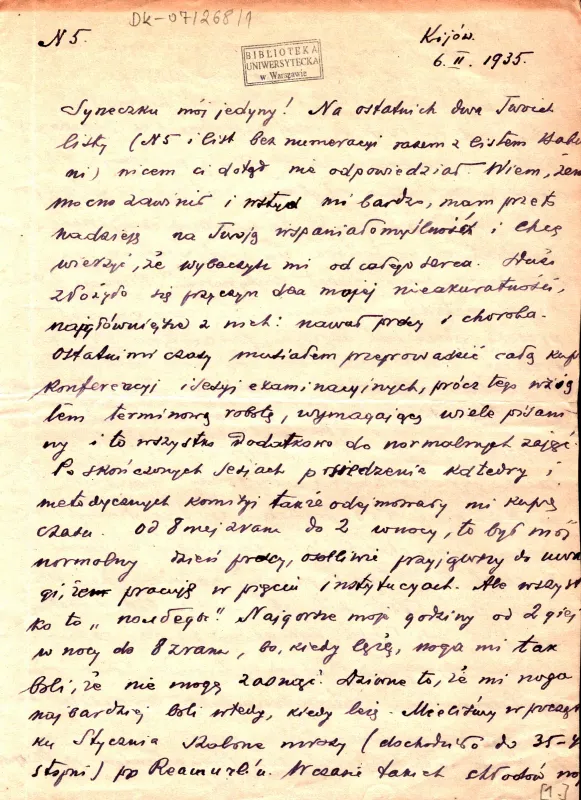 Dk-07/268/1
N 5.
Kijów.
6. II. 1935.
BIBLIOTEKA
UNIWERSYTECKA
w Warszawie
Syneczku mój jedyny! Na ostatnich dwa Twoich
listy (N5 i list bez numeracyi razem z listem
ni) niczem ci dotąd nie odpowiedział. Wiem, żem
mocno zawinił i wstyd mi bardzo, mam przeto
nadzieję na Twoją wspaniałomyślność i chcę
wierzyć, że wybaczysz mi od całego serca. Dużo
złożyło się przyczyn dla mojej nieakuratności,
najgłówniejsze z nich: nawał pracy i choroba.
Ostatnimi czasy musiałem przeprowadzić całą kupę
konferencyi i sesyj examinacyjnych, prócz tego wzią
łem terminową robotę, wymagającą wiele pisani
ny i to wszystko dodatkowo do normalnych zajęć.
Po skończonych sesjach posiedzenia katedry i
metodycznych komisyi także odejmowały mi kupę
czasu. Od 8mej zrana do 2 w nocy, to był mój
normalny dzień pracy, osobliwie przyjąwszy do uwa
gi, że pracuję w pięciu instytucyach. Ale wszyst
ko to „полбеды“! Najgorsze moje godziny od 2giej
w nocy do 8 zrana, bo, kiedy leżę, noga mi tak
boli, że nie mogę zasnąć. Dziwne to, że mi noga
najbardziej boli wtedy, kiedy leżę. Mieliśmy w począt
ku Stycznia szalone mrozy (dochodziło do 35-4
stopni) po Reamur'u. W czasie takich chłodów
[1.]